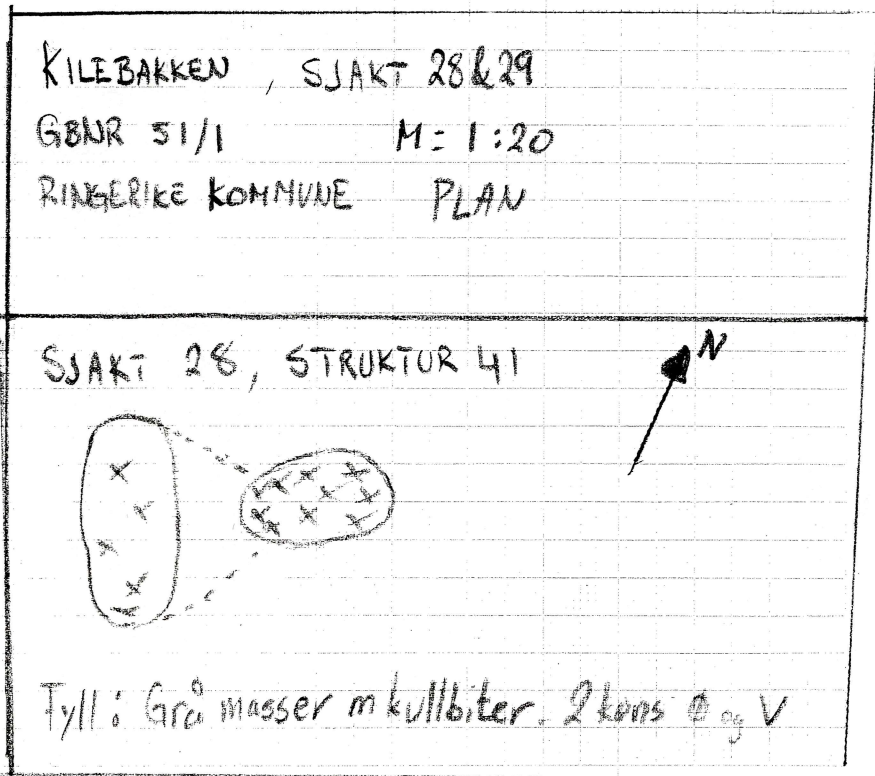 KILEBAKKEN, SJAKT 28&29
GBNR 51/1 M= 1:20
RINGERIKE KOMMUNE PLAN
SJAKT 28, STRUKTUR 41
N
Fyll: Grå masser m kullbiter. 2 kons Ø og V